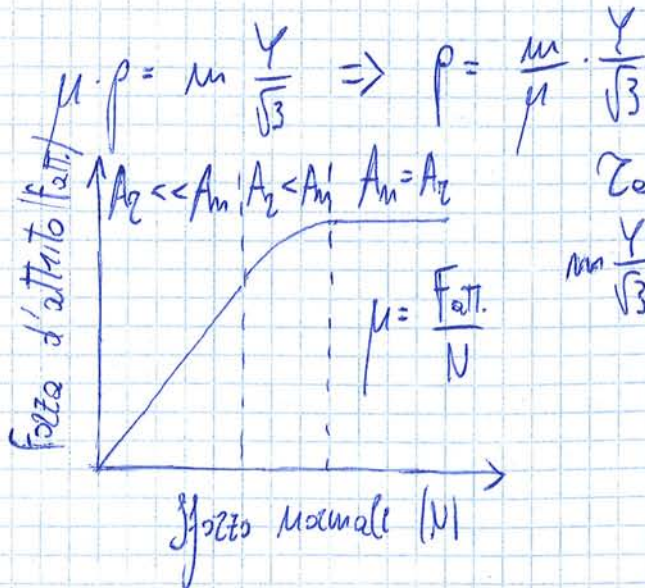 μ · p = m Y/√3 ⇒ p = m/μ · Y/√3
Forza d'attrito (Fatt.)
Ar << An Ar < An An = Ar
m Y/√3
μ = Fatt./N
Sforzo normale (N)